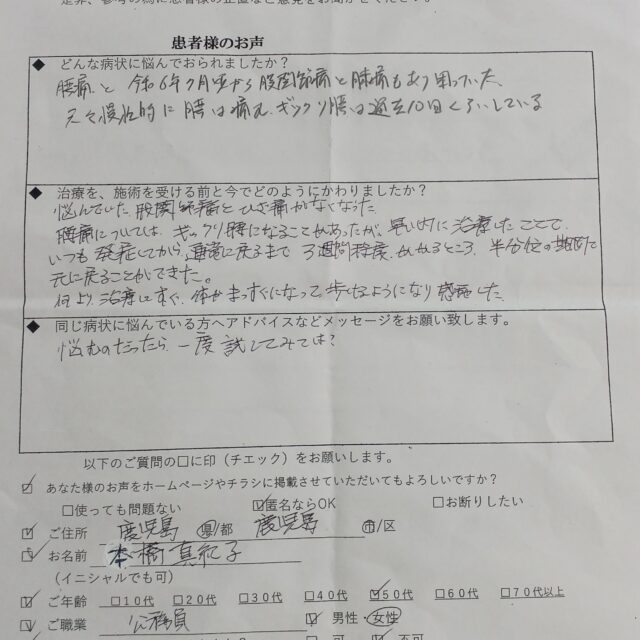 是非、参考の為に患者様の正直なご意見をお聞かせください。
患者様のお声
◆ どんな病状に悩んでおられましたか？
腰痛と 令和6年7月頃から股関節痛と膝痛もあり困っていた。
元々慢性的に腰は痛み、ギックリ腰は過去10回くらいしている
◆ 治療を、施術を受ける前と今でどのようにかわりましたか？
悩んでいた股関節痛とひざ痛がなくなった
腰痛については、ギックリ腰になることがあったが、早い内に治療したことで、
いつも発症してから、通常に戻るまで3週間程度かかるところ、半分位の期間で
元に戻ることができた。
何より治療後すぐ、体がまっすぐになって歩けるようになり感謝した。
◆ 同じ病状に悩んでいる方へアドバイスなどメッセージをお願い致します。
悩むのだったら、一度試してみては？
以下のご質問の□に印（チェック）をお願いします。
☑ あなた様のお声をホームページやチラシに掲載させていただいてもよろしいですか？
□使っても問題ない ☑匿名ならOK □お断りしたい
☑ ご住所 鹿児島 県/都 鹿児島 市/区
☑ お名前 本橋真紀子
(イニシャルでも可)
☑ ご年齢 □10代 □20代 □30代 □40代 ☑50代 □60代 □70代以上
☑ ご職業 公務員 ☑ 男性・女性
□ 可 ☑ 不可